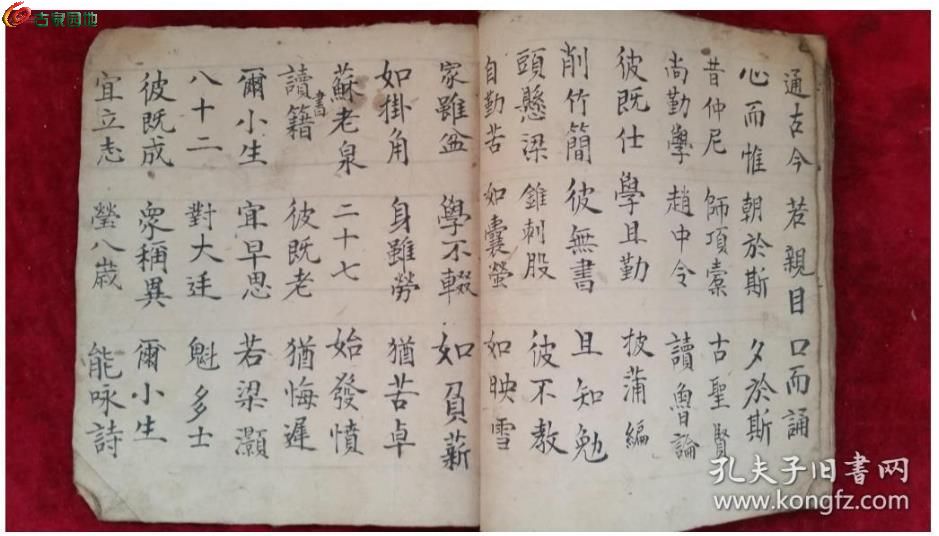 通古今 若親目 口而誦
心而惟 朝於斯 夕於斯
昔仲尼 師項橐 古聖賢
尚勤學 趙中令 讀魯論
彼既仕 學且勤 披蒲編
削竹簡 彼無書 且知勉
頭懸梁 錐刺股 彼不教
自勤苦 如囊螢 如映雪
家雖盆 學不輟 如負薪
如掛角 身雖勞 猶苦卓
蘇老泉 二十七 始發憤
讀書籍 彼既老 猶悔遲
爾小生 宜早思 若梁灝
八十二 對大廷 魁多士
彼既成 眾稱異 爾小生
宜立志 瑩八歲 能咏詩
古泉园地
孔夫子旧书网
www.kongfz.com